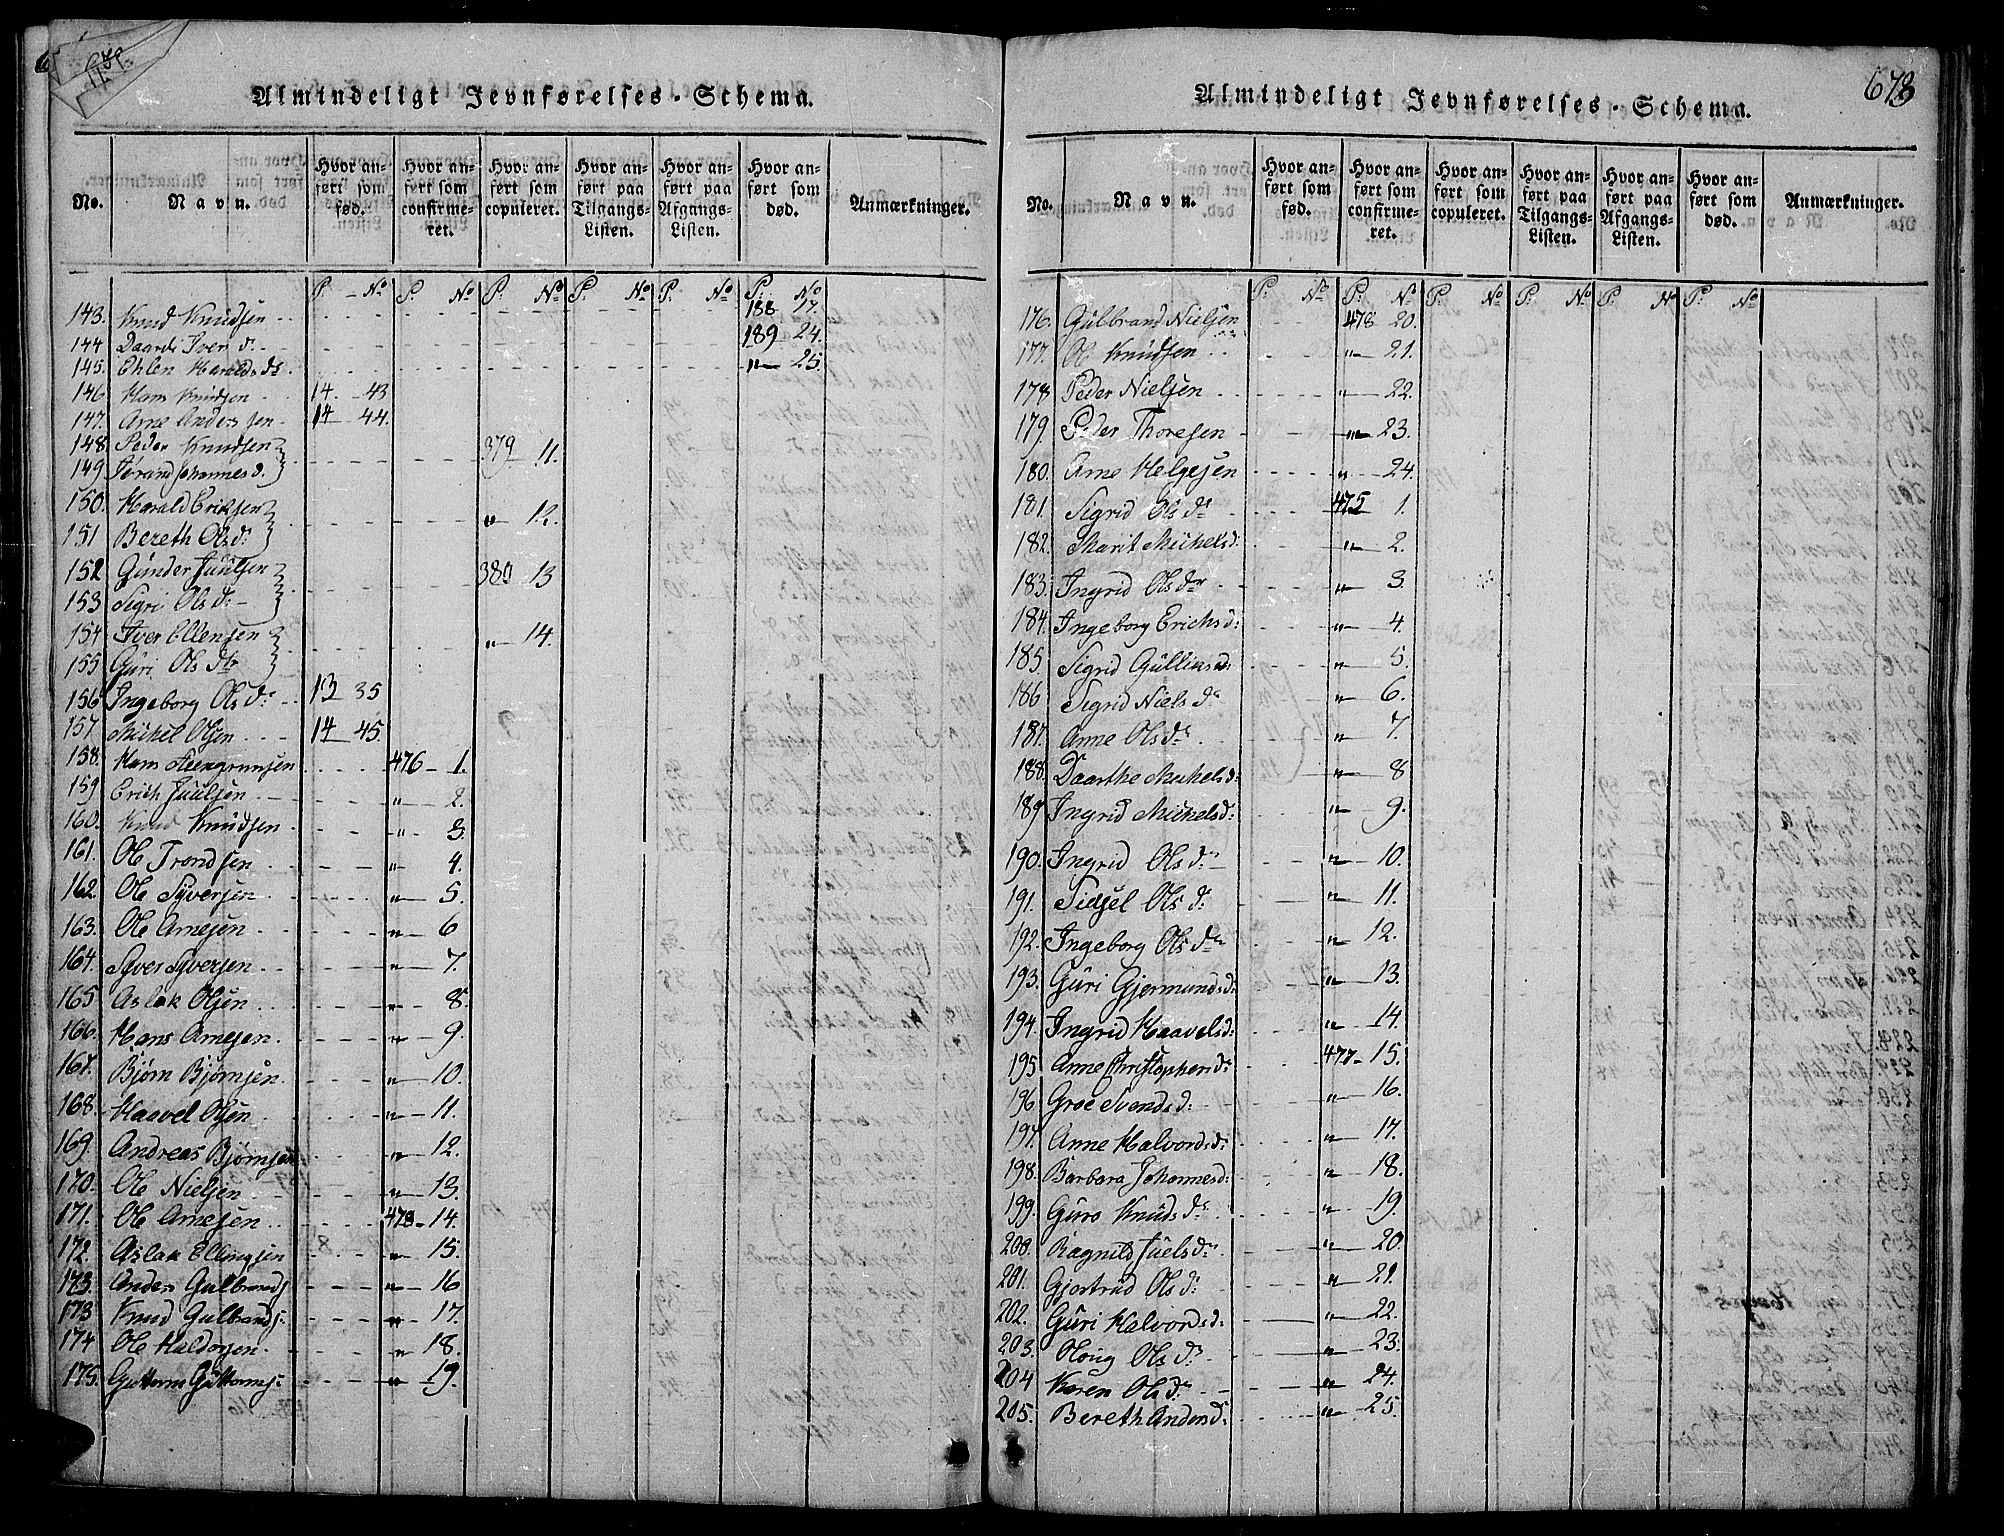 Almindeligt Jevnførelses-Schema.
No. | Navn. | Hvor anført som fød. | Hvor anført som confirmeret. | Hvor anført som copuleret. | Hvor anført paa Tilgangs-Listen. | Hvor anført paa Afgangs-Listen. | Hvor anført som død. | Anmærkninger.
P: No P: No P: No P: No P: No P: No
143. Knud Knudsen 188 17.
144 Daarde Iver d. 189 24.
145. Ehlen Haralds d: " 25.
146 Hans Knudsen 14. 43
147. Arne Anders sen 14 44.
148. Peder Knudsen 379 11.
149 Jørand Johannes d.
150. Harald Eriksen " 12.
151 Bereth Ols d:
152 Gunder Juulsen 380 13
153 Sigri Ols d:
154 Iver Ellensen " 14.
155 Guri Ols dtr
156 Ingeborg Ols d: 13 35
157 Mikel Olsen 14 45.
158. Hans Steengrunsen 476 1.
159 Erich Juulsen " 2.
160. Knud Knudsen " 3
161. Ole Trondsen " 4.
162. Ole Syversen " 5.
163. Ole Arnesen " 6
164. Syver Syversen " 7.
165 Aslak Olsen " 8.
166. Hans Arnesen " 9.
167. Bjørn Bjørnsen " 10.
168. Haavel Olsen " 11.
169. Andreas Bjørnsen " 12.
170. Ole Nielsen " 13.
171. Ole Arnesen 478 14.
172. Aslak Ellingsen " 15.
173. Anders Gulbrands " 16
173 Knud Gulbrands: " 17.
174 Ole Haldorsen " 18.
175. Guttorm Guttorms: " 19.
678
Almindeligt Jevnførelses-Schema.
No. | Navn. | Hvor anført som fød. | Hvor anført som confirmeret. | Hvor anført som copuleret. | Hvor anført paa Tilgangs-Listen. | Hvor anført paa Afgangs-Listen. | Hvor anført som død. | Anmærkninger.
P: No P: No P: No P: No P: No P: No
176. Gulbrand Nielsen 478 20.
177. Ole Knudsen " 21.
178 Peder Nielsen " 22.
179. Peder Thoresen " 23.
180. Arne Helgesen " 24.
181. Sigrid Ols d: 475 1.
182. Marit Mikels d: " 2.
183. Ingrid Ols dr " 3.
184. Ingeborg Erichs d: " 4.
185 Sigrid Gulliks d: " 5.
186 Sigrid Niels d: " 6.
187. Anne Ols d: " 7.
188. Daarthe Mikels d: " 8
189 Ingrid Mikels d: " 9.
190. Ingrid Ols d: " 10.
191. Sidsel Ols d: " 11.
192. Ingeborg Ols d: " 12.
193. Guri Gjermunds d: " 13.
194. Ingrid Haavels d: " 14.
195 Anne Christophers d: 477 15.
196 Groe Svends d: " 16.
197. Anne Halvords d: " 17.
198. Barbara Johannes d: " 18.
199. Guro Knuds d: " 19.
200. Ragnild Juels d: " 20.
201. Gjertrud Ols d: " 21.
202. Guri Halvords d: " 22.
203. Oloug Ols d: " 23.
204 Karen Ols d: " 24.
205. Bereth Anders d: " 25.